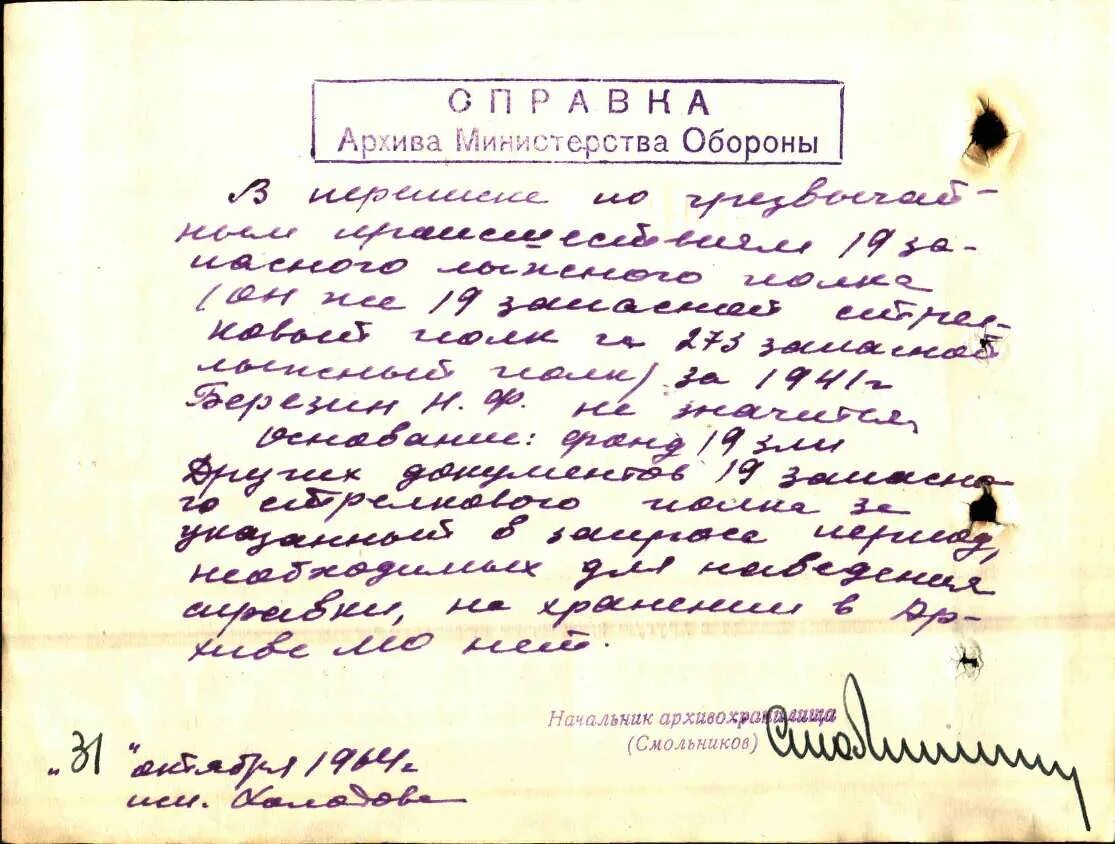 СПРАВКА
Архива Министерства Обороны
В переписке по чрезвычай-
ным происшествиям 19 за-
пасного лыжного полка
(он же 19 запасной стрел-
ковый полк и 273 запасной
лыжный полк) за 1941 г
Березин Н. Ф. не значится,
Основание: фонд 19 злп
Других документов 19 запасно-
го стрелкового полка за
указанный в запросе период,
необходимых для наведения
справки, на хранении в Ар-
хиве МО нет.
Начальник архивохранилища
(Смольников)
„31" октября 1964 г
исп. Холодова